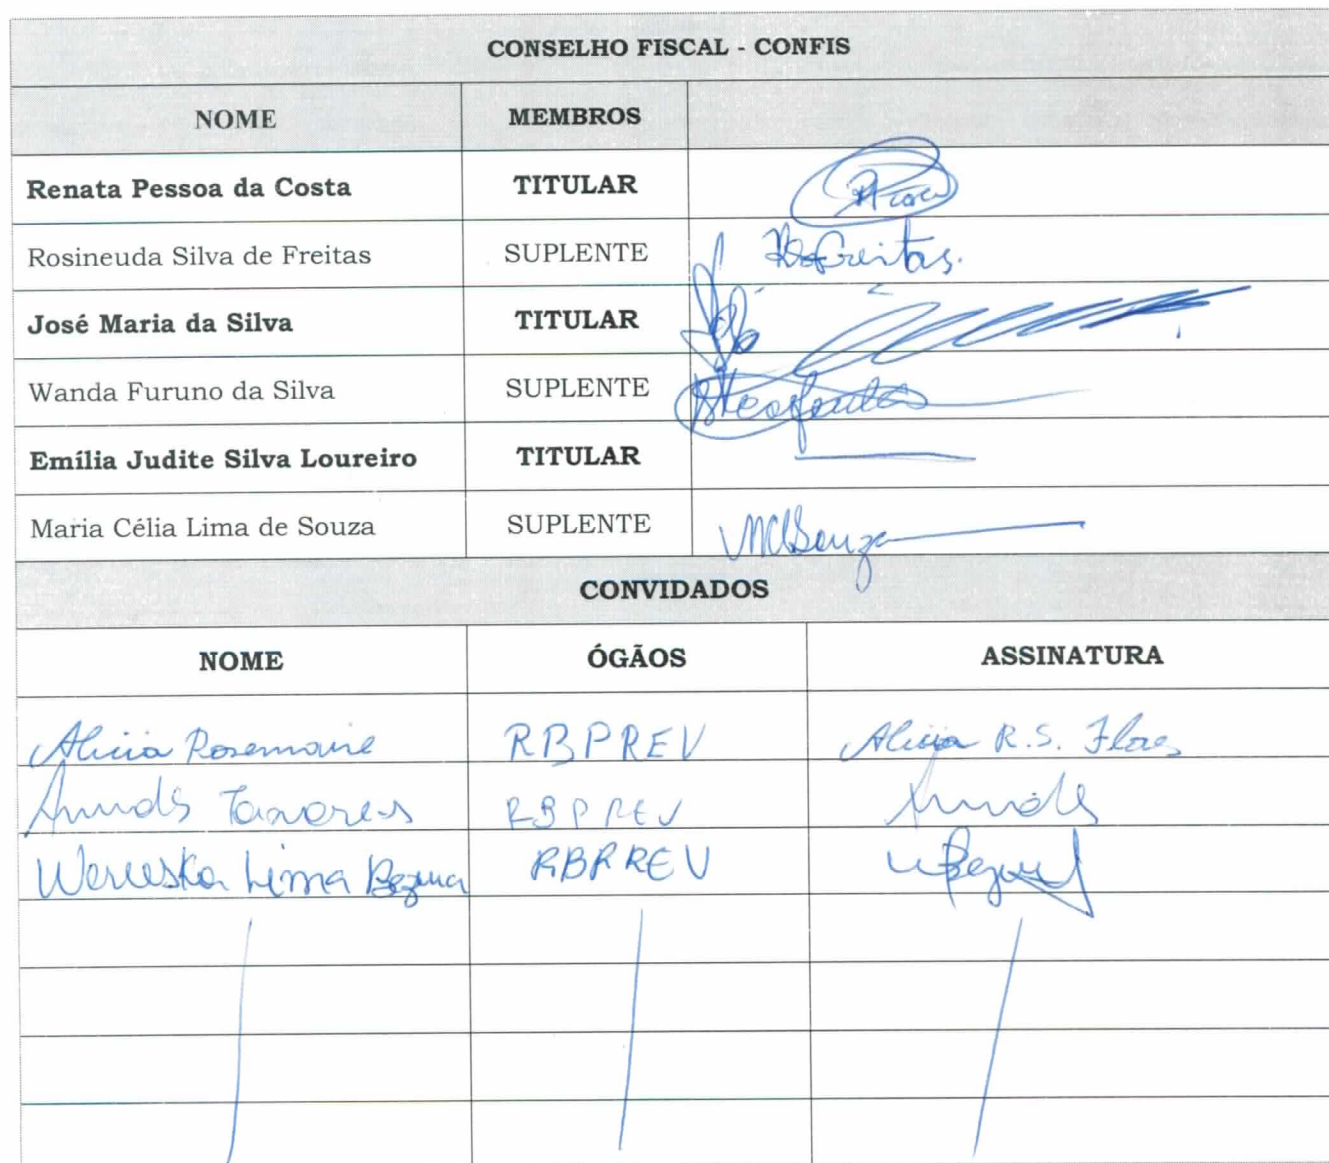 CONSELHO FISCAL - CONFIS
NOME MEMBROS
Renata Pessoa da Costa TITULAR
Rosineuda Silva de Freitas SUPLENTE Freitas.
José Maria da Silva TITULAR
Wanda Furuno da Silva SUPLENTE
Emília Judite Silva Loureiro TITULAR
Maria Célia Lima de Souza SUPLENTE MCLSouza
CONVIDADOS
NOME ÓGÃOS ASSINATURA
Alicia Rosemaire RBPREV Alicia R.S. Flores
Tavares RBPREV
Werleska Lima Bezerra RBPREV Bezerra